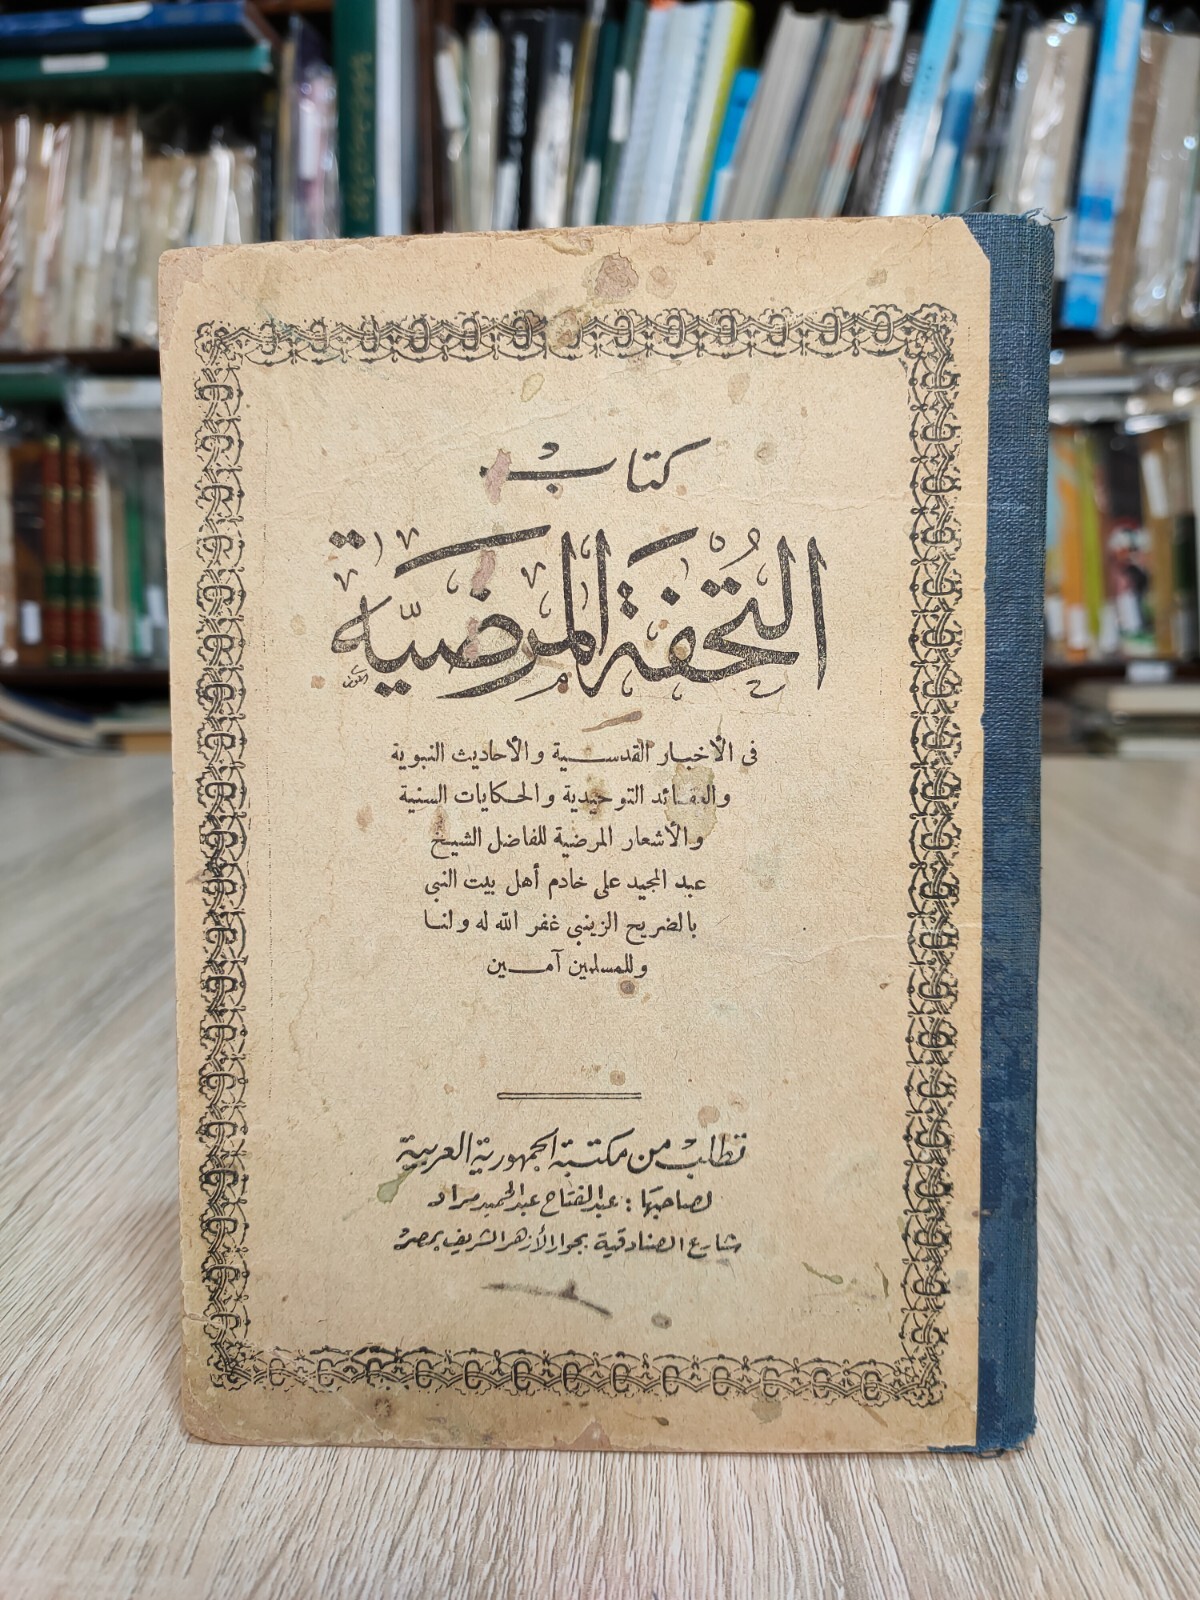 كتاب
التحفة المرضية
فى الأخبار القدسية والأحاديث النبوية
والعقائد التوحيدية والحكايات السنية
والأشعار المرضية للفاضل الشيخ
عبد المجيد على خادم أهل بيت النبى
بالضريح الزينبى غفر الله له ولنا
وللمسلمين آمين
تطلب من مكتبة الجمهورية العربية
لصاحبها : عبد الفتاح عبد الحميد مراد
شارع الصنادقية بجوار الأزهر الشريف بمصر